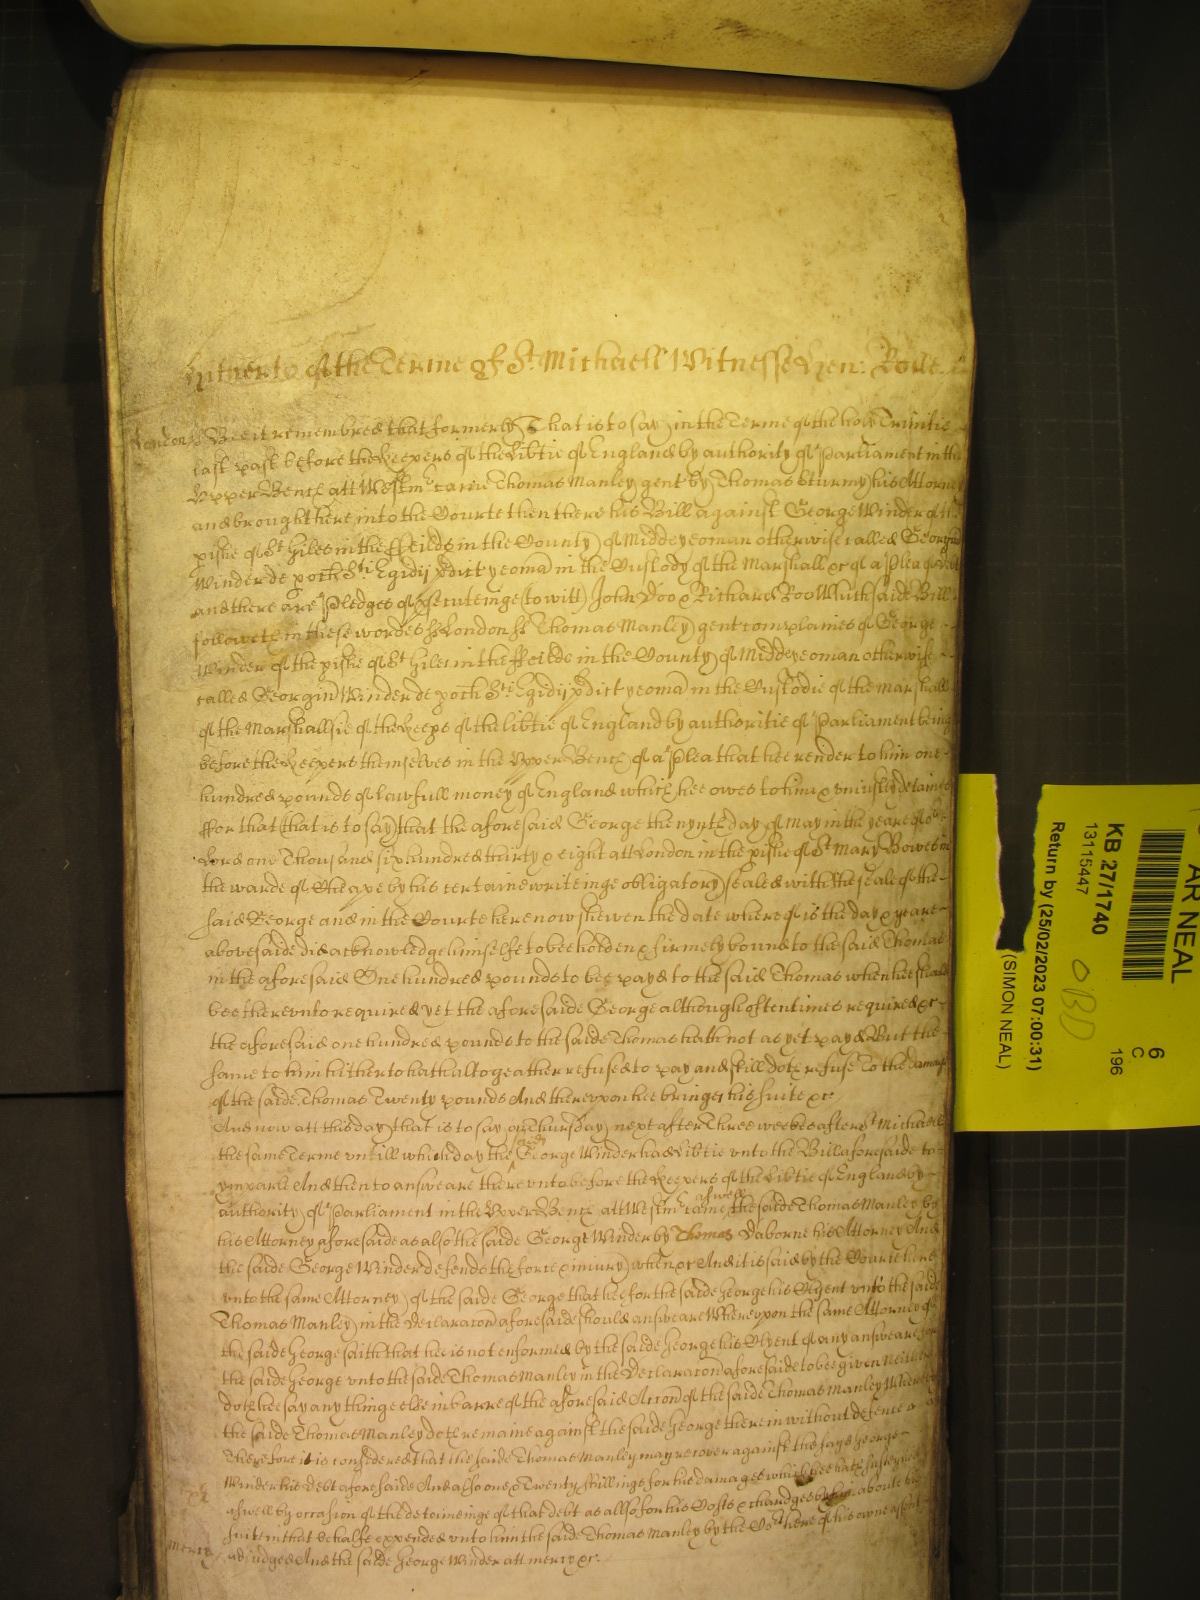 hitherto of the Terme of St. Michaell Witnesse Hen: Rolle
London ss Bee it remembred that formerly That is to say in the Terme of the holy Trinitie
last past before the Keepers of the libtie of England by authority of Parliament in the
Upper Bench att Westmr came Thomas Manley gent by Thomas Sturmy his Attorney
and brought here into the Courte then there his Bill against George Winder of the
pishe of St Giles in the ffeilds in the County of Midd yeoman otherwise called Georgiu
Winder de poch Sti Egidij pdict yeoman in the Custody of the Marshall &c of a Plea of debt
and there are Pledges of psecuteinge (to witt) John Doo & Richard Roo Which saide Bill
followeth in these wordes ss London ss Thomas Manley gent complaines of George
Winder of the pishe of St Giles in the ffeilds in the County of Midd yeoman otherwise
called Georgiu Winder de poch Sti Egidij pdict yeoman in the Custodie of the Marshall
of the Marshallsie of the Keeps of the libtie of England by authoritie of Parliament being
before the Keepers themselves in the Upper Bench of a Plea that hee render to him one
hundred pounds of lawfull money of England which hee owes to him & uniustly detaines
ffor that (that is to say) that the aforesaid George the nynth day of May in the yeare of our
Lord one Thousand six hundred thirty & eight att London in the pishe of St Mary Bowe in
the warde of Cheape by his certaine writeinge obligatory sealed with the seale of the
said George and in the Courte here now shewen the date whereof is the day & yeare
abovesaide did acknowledge himselfe to bee holden & firmely bound to the said Thomas
in the aforesaid One hundred pounds to bee payd to the said Thomas when hee should
bee thereunto required yet the aforesaide George although oftentimes required &c
the aforesaid one hundred pounds to the saide Thomas hath not as yet payd But the
same to him hitherto hath altogeather refused to pay and still doth refuse To the damage
of the saide Thomas Twenty pounds And thereupon hee bringes his suite &c
And now att this day that is to say on Thursday next after Three weekes after St Michaell
the same Terme untill which day the said George Winder had libtie unto the Bill aforesaide to
ymparle And then to answeare thereunto before the Keepers of the Libtie of England by
authority of Parliament in the Upper Bench att Westmr came as well the saide Thomas Manley by
his Attorney aforesaide as also the saide George Winder by Thomas Daborne his Attorney And
the saide George Winder defends the force & iniury when &c And it is said by the Courte here
unto the same Attorney of the saide George that hee for the saide George his Clyent unto the saide
Thomas Manley in the declaracon aforesaide should answeare Whereupon the same Attorney of
the saide George saith that hee is not enformed by the saide George his Clyent of any answeare for
the saide George unto the saide Thomas Manley in the Declaracon aforesaide to bee given Neither
doth hee say any thinge else in barre of the aforesaid Accon of the saide Thomas Manley Whereby
the saide Thomas Manley doth remaine against the saide George therein without defence
Therefore it is considered that the saide Thomas Manley may recover against the saye George
Winder his debt aforesaide And also one & Twenty shillings for his damages which hee hath susteyned
aswell by occasion of the deteineinge of that debt as allso for his Costs & chardges by him aboute his
suit in that behalfe expended unto him the saide Thomas Manley by the Court here of his owne assent
adiudged And the saide George Winder att mercy &c
mercy
AR NEAL
KB 27/1740
13115447
6
C
196
OBD
Return by (25/02/2023 07:00:31)
(SIMON NEAL)